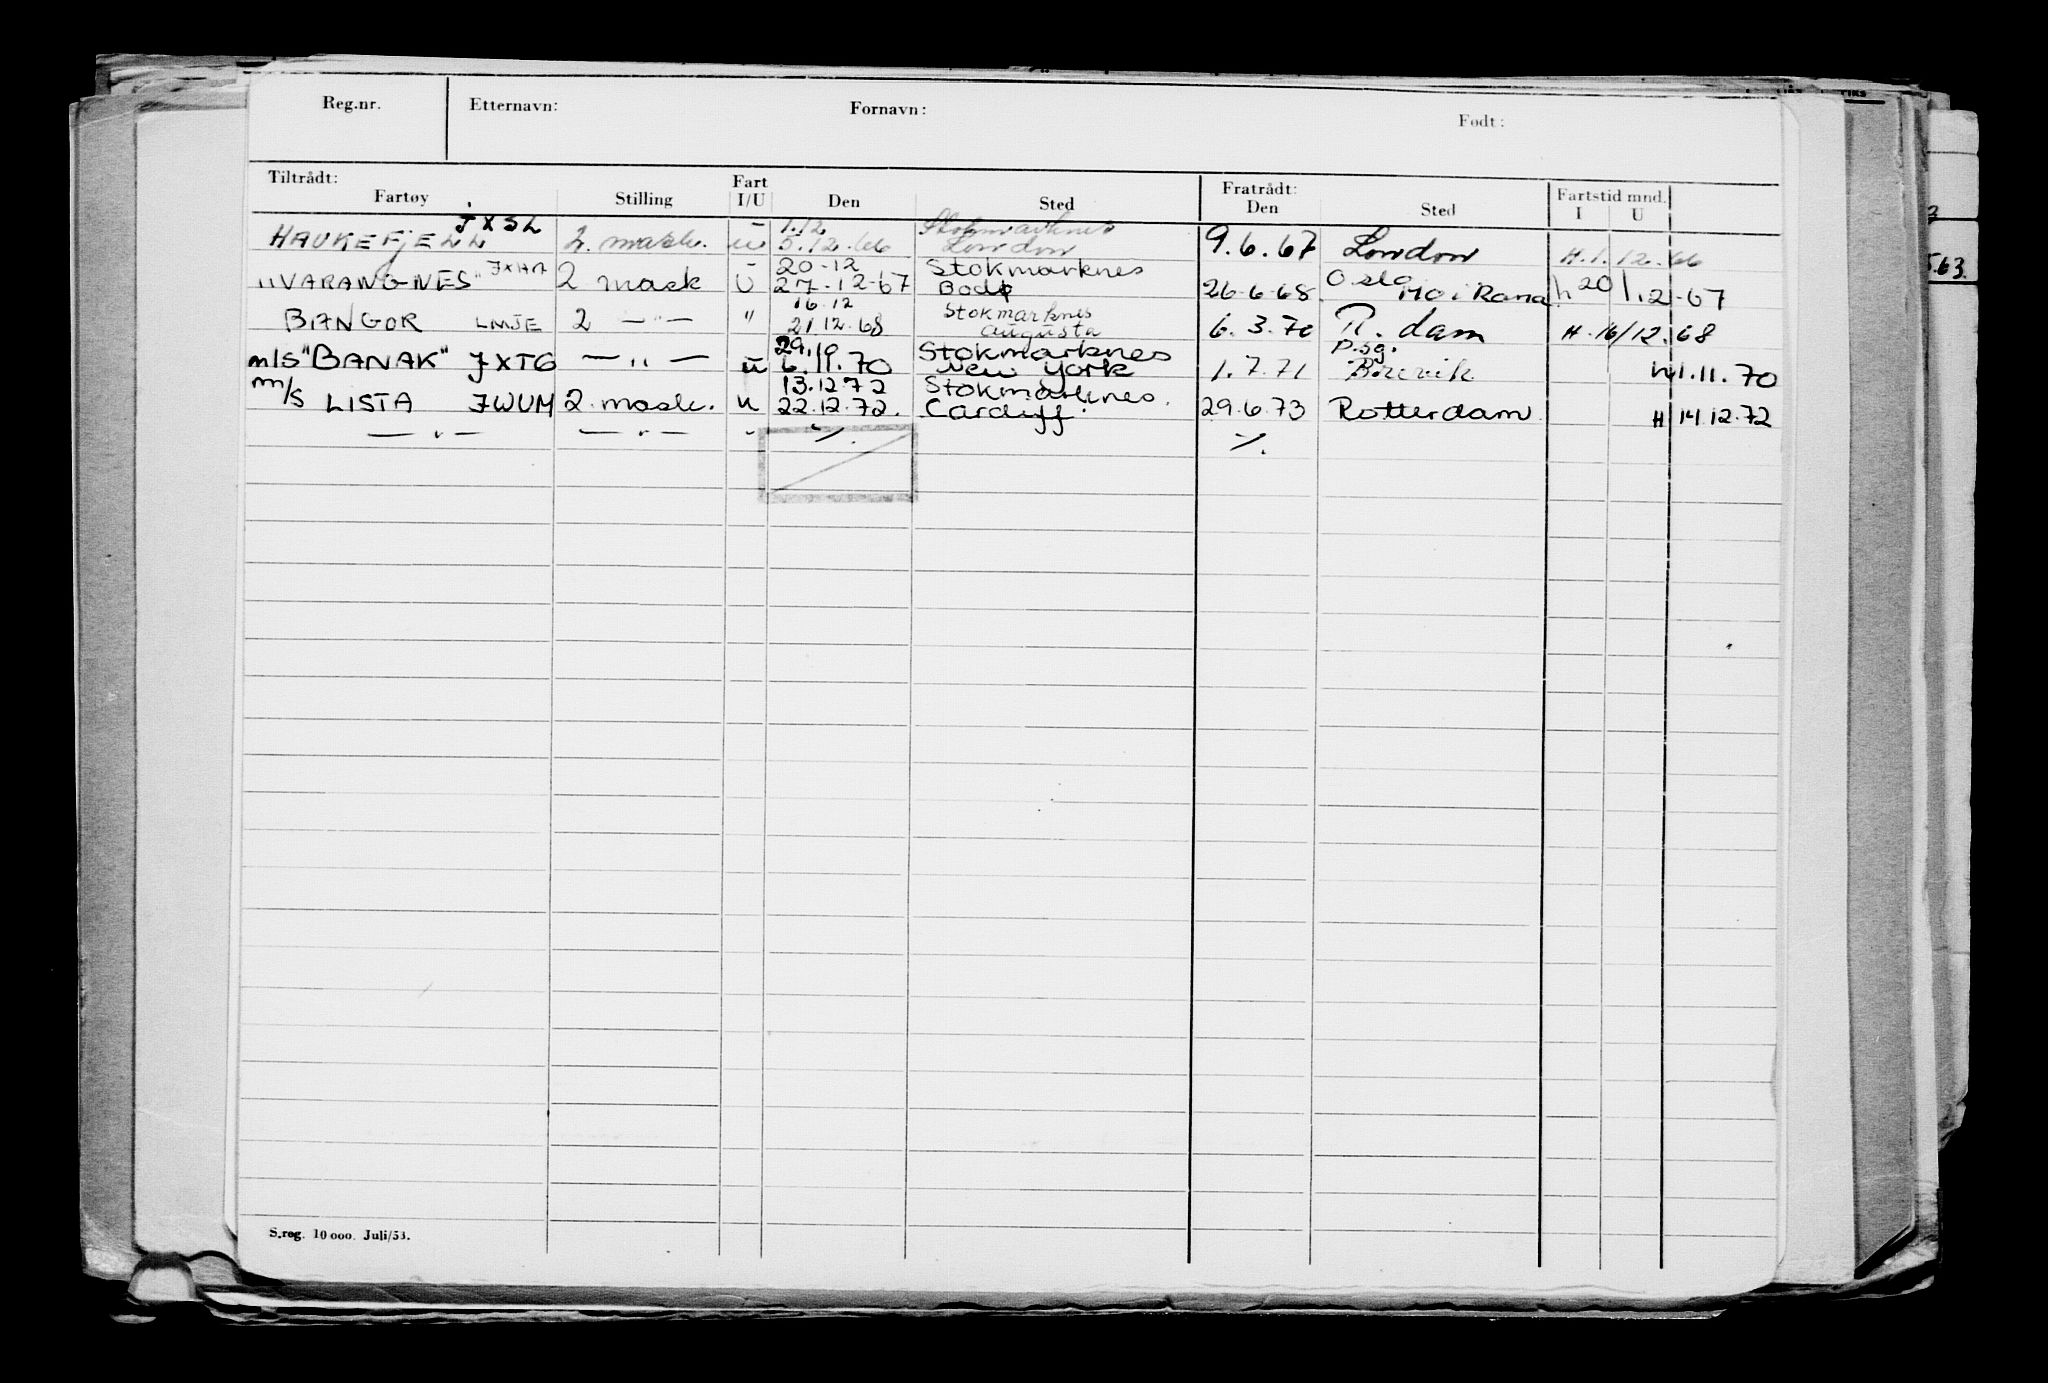 Reg.nr. Etternavn: Fornavn: Født:
Tiltrådt: Fartøy Stilling Fart I/U Den Sted Fratrådt: Den Sted Fartstid mnd. I U
JXSL 1.12 Stokmarknes
HAUKEFJELL 2. mask. u 5.12.66 London 9.6.67 London H.1.12.66
JXHA 20-12 Stokmarknes Oslo
"VARANGNES" 2 mask U 27-12-67 Bodø 26-6-68 Mo i Rana h 20/12-67
16.12 Stokmarknes
BANGOR LMJE 2 —"— " 21.12.68 Augusta 6.3.70 R.dam H.16/12.68
29.10 Stokmarknes p.sg.
m/s "BANAK" JXTG —"— u 6.11.70 New York 1.7.71 Brevik h 1.11.70
m/s 13.12.72 Stokmarknes.
LISTA JWUM 2. mask. u 22.12.72. Cardiff. 29.6.73 Rotterdam H 14.12.72
—"— —"— - %. %.
S.reg. 10 000. Juli/53.
5.63.